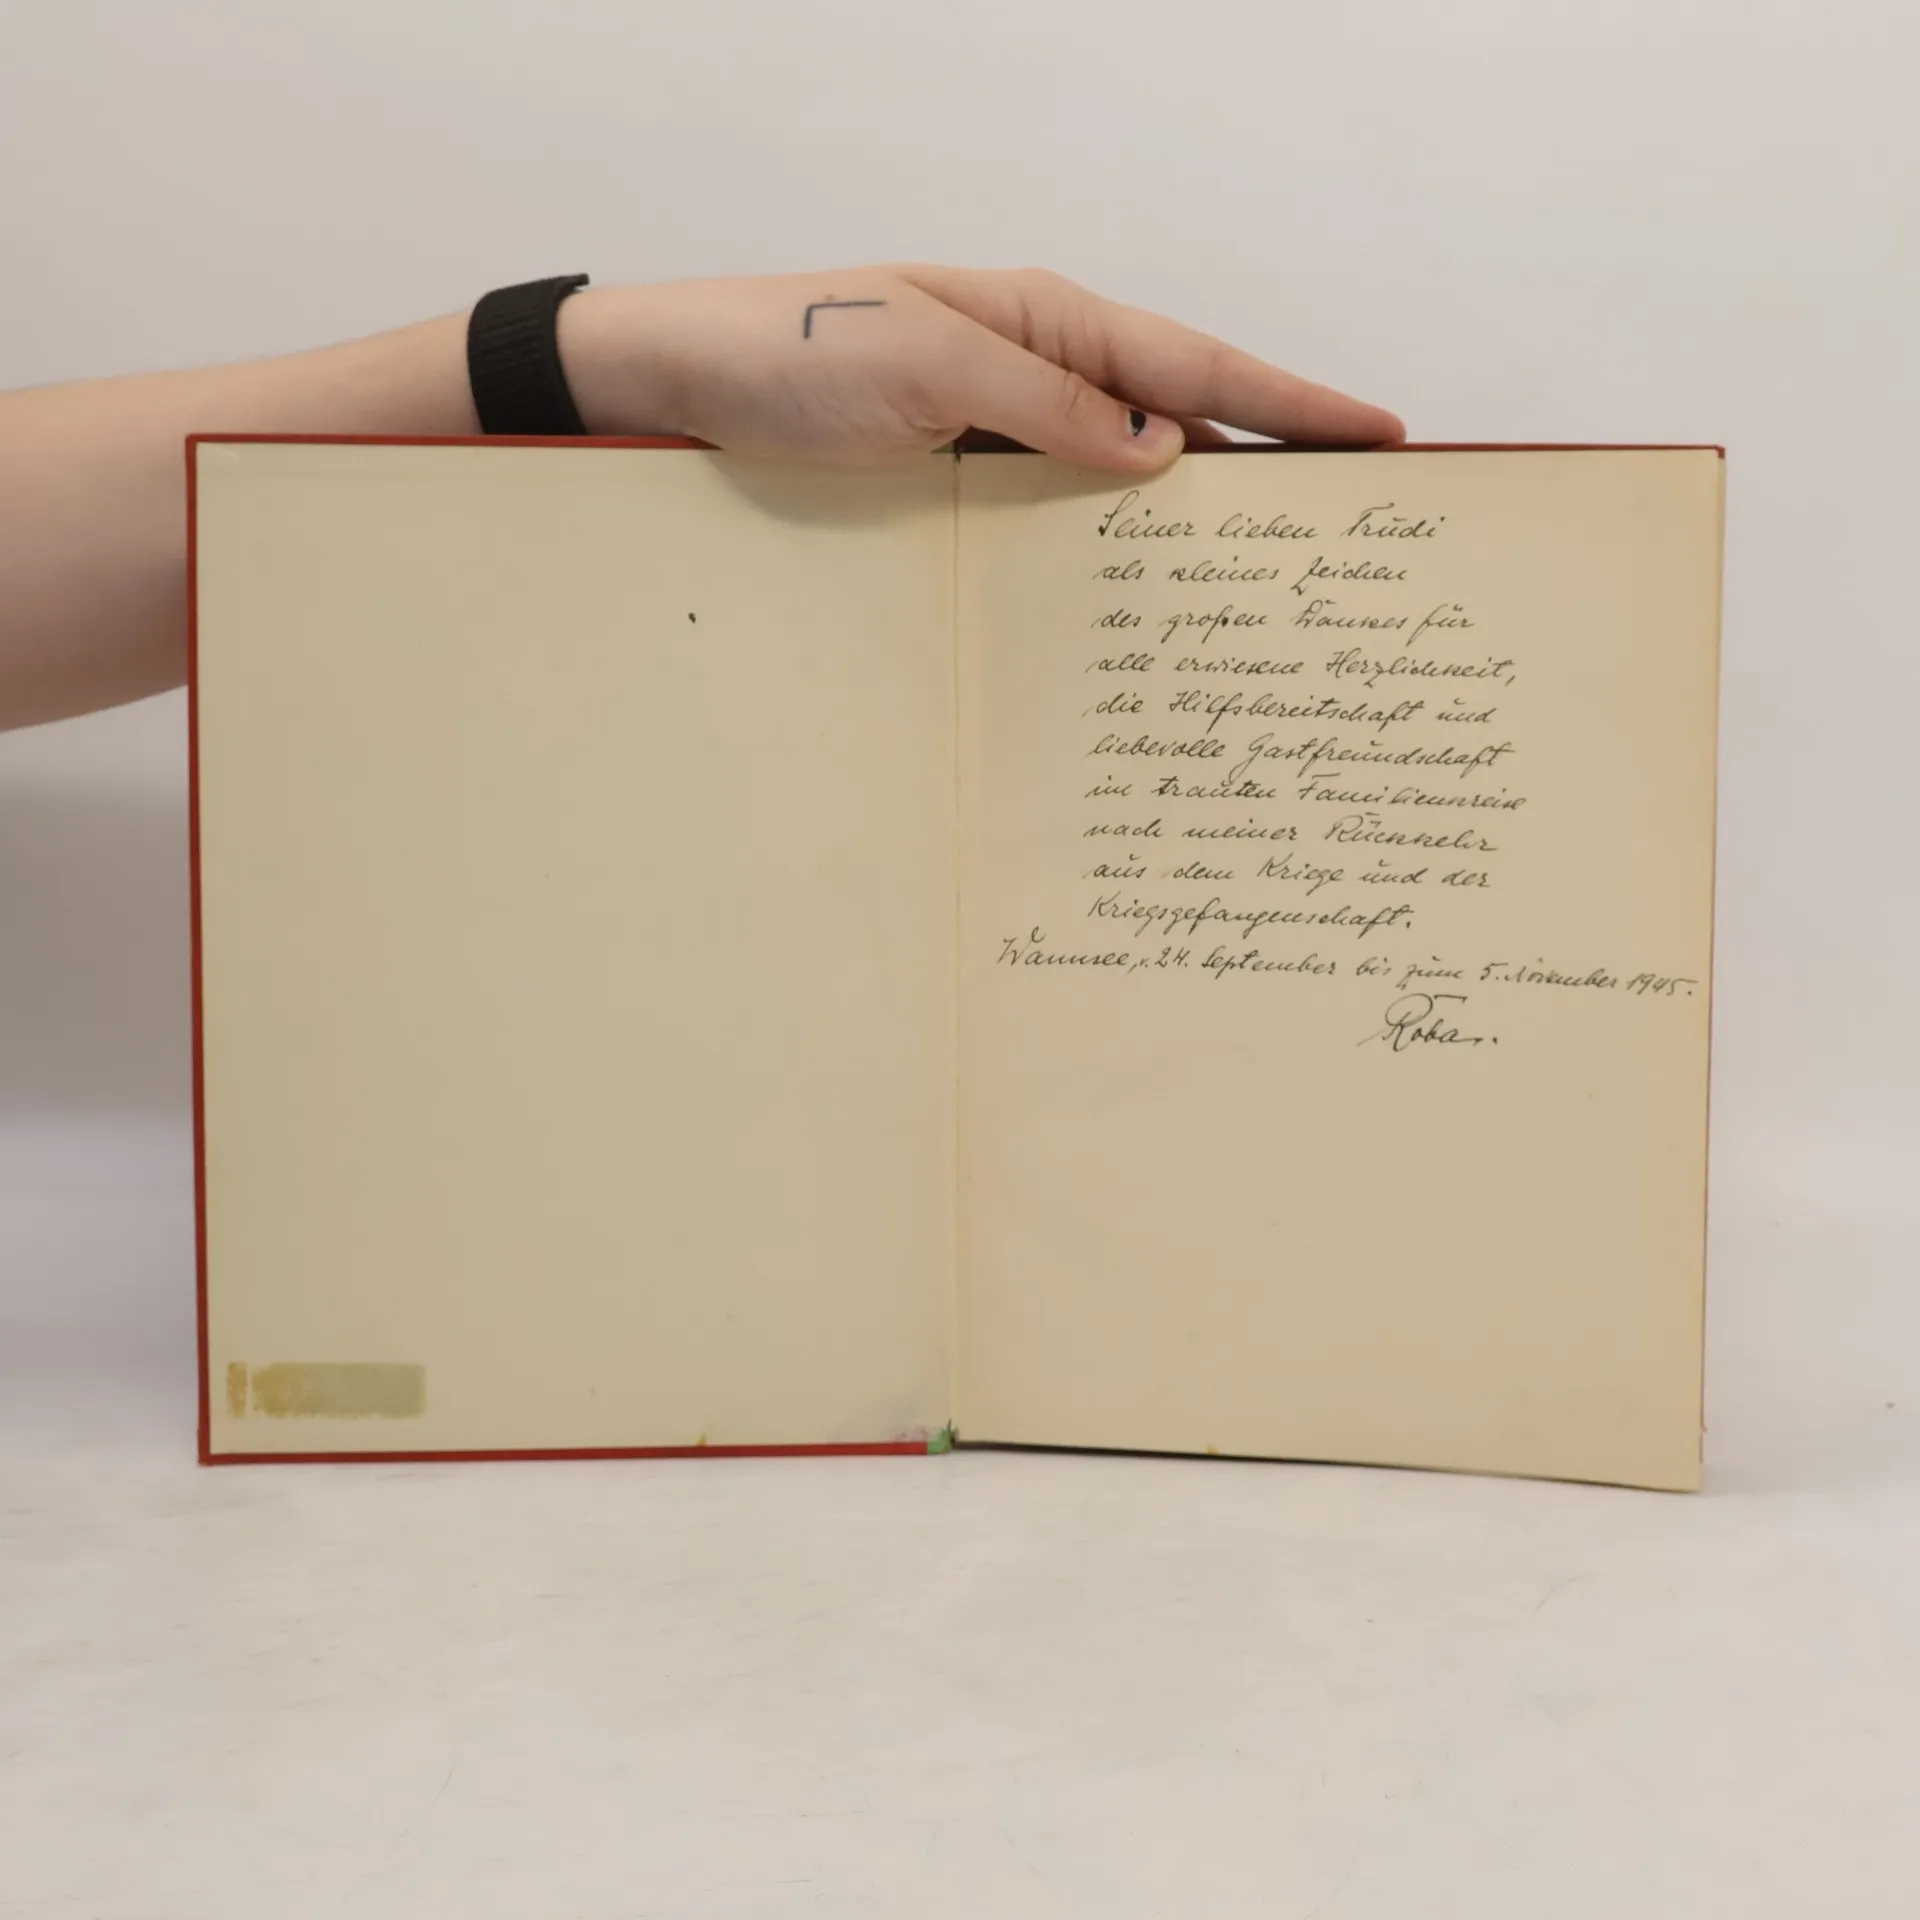 Seiner lieben Trudi
als kleines Zeichen
des großen Dankes für
alle erwiesene Herzlichkeit,
die Hilfsbereitschaft und
liebevolle Gastfreundschaft
im trauten Familienkreise
nach meiner Rückkehr
aus dem Kriege und der
Kriegsgefangenschaft.
Wannsee, v. 24. September bis zum 5. November 1945.